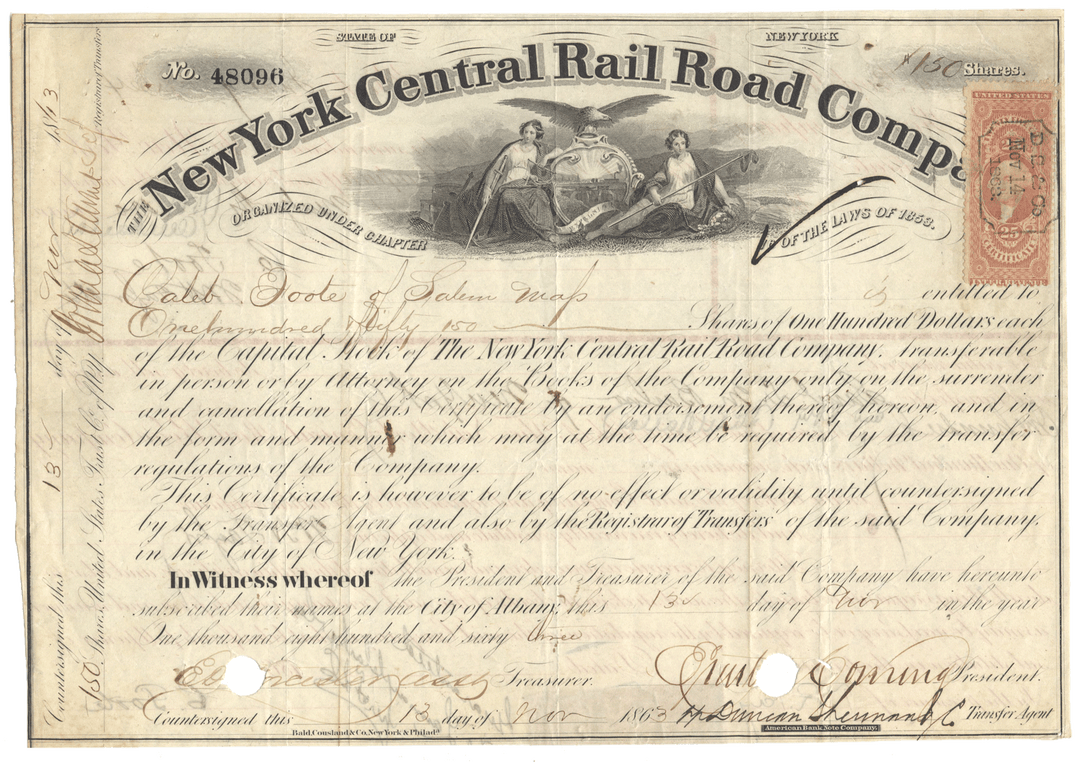 STATE OF NEW YORK
No. 48096
150 Shares.
THE New York Central Rail Road Compa
ORGANIZED UNDER CHAPTER OF THE LAWS OF 1853.
UNITED STATES
D. S. & Co
Nov 14
1863
25
CERTIFICATE
INTER. REVENUE
Caleb Foote of Salem Mass is entitled to
One hundred & fifty 150 Shares of One Hundred Dollars each
of the Capital Stock of The New York Central Rail Road Company, transferable
in person or by Attorney on the Books of the Company only on the surrender
and cancellation of this Certificate by an endorsement thereof hereon, and in
the form and manner which may at the time be required by the transfer
regulations of the Company.
This Certificate is however to be of no effect or validity until countersigned
by the Transfer Agent and also by the Registrar of Transfers of the said Company,
in the City of New York.
In Witness whereof the President and Treasurer of the said Company have hereunto
subscribed their names at the City of Albany, this 13 day of Nov in the year
One thousand eight hundred and sixty three
Treasurer.
Erastus Corning President.
Countersigned this 13 day of Nov 1863 Duncan Sherman & Co Transfer Agent
Bald, Cousland & Co. New York & Philada.
American Bank Note Company.
Countersigned this 13 day of Nov 1863
150 Shares, United States Trust Co. of N.Y. Registrar of Transfers